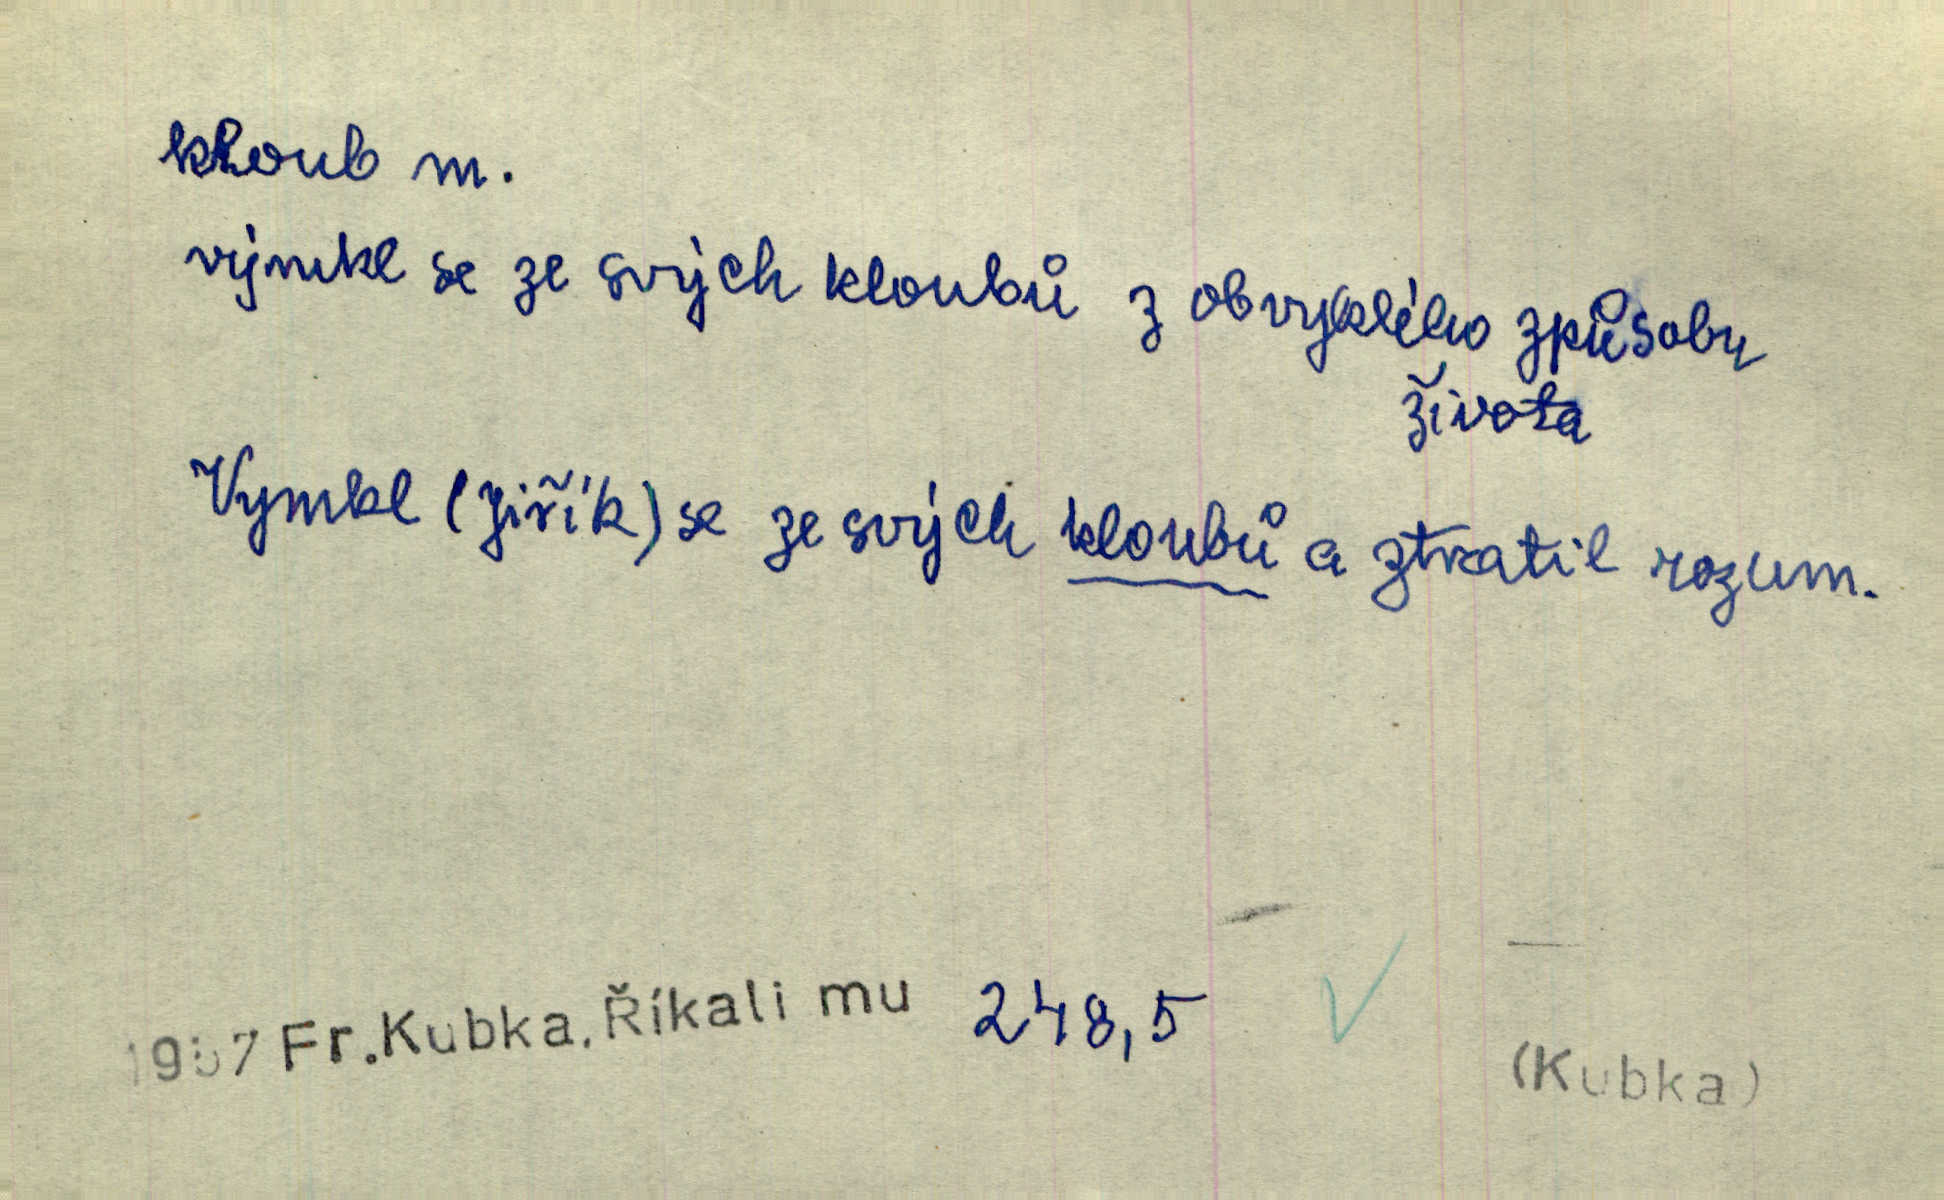 kloub m.
výmkl se ze svých kloubů z obvyklého způsobu
života
Vymkl (Jiřík) se ze svých kloubů a ztratil rozum.
1957 Fr. Kubka, Říkali mu 248,5
(Kubka)